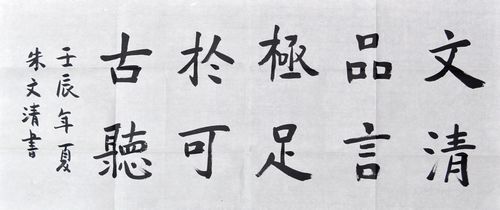 文清
品言
極足
於可
古聽
壬辰年夏
朱文清書